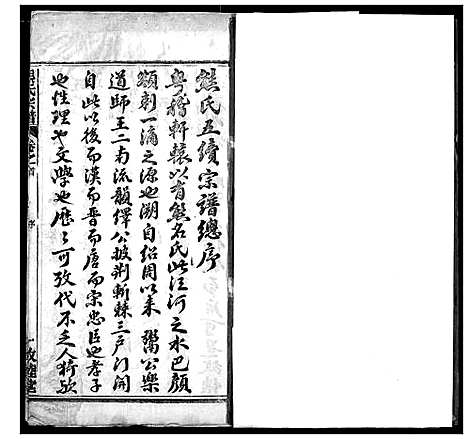 熊氏五續宗譜總序
粵稽軒轅以有熊名氏此江河之水巴顏
頌刺一滴之源也溯自紹周以來鬻公樂
道師王二南流韻繹公披荆斬棘三户门開
自此以後而漢而晉而唐而宗忠臣也孝子
也性理也文學也歷〻可攷代不乏人猗欤
熊氏宗譜
卷之首
序
一
敦睦堂